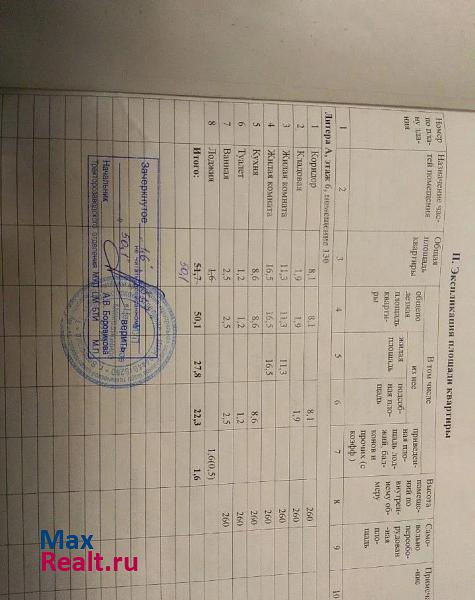 II. Экспликация площади квартиры
Номер по плану здания
Назначение частей помещения
Общая площадь квартиры
В том числе
общеполезная площадь квартиры
из нее
жилая площадь
подсобная площадь
приведенная площадь лоджий, балконов и прочих (с коэфф.)
Высота помещений по внутреннему обмеру
Самовольно переоборудованная площадь
Примеча-ние
1 2 3 4 5 6 7 8 9 10
Литера А, этаж 6, помещение 130
1 Коридор 8,1 8,1 8,1 260
2 Кладовая 1,9 1,9 1,9 260
3 Жилая комната 11,3 11,3 11,3 260
4 Жилая комната 16,5 16,5 16,5 260
5 Кухня 8,6 8,6 8,6 260
6 Туалет 1,2 1,2 1,2 260
7 Ванная 2,5 2,5 2,5 260
8 Лоджия 1,6 1,6(0,5)
Итого: 51,7 50,1 27,8 22,3 1,6
50,1
Зачеркнутое
не читать
верить
Начальник
Тракторозаводского отделения МУП ЦМ БТИ
А.В. Боровикова
М.П.
Max
Realt.ru